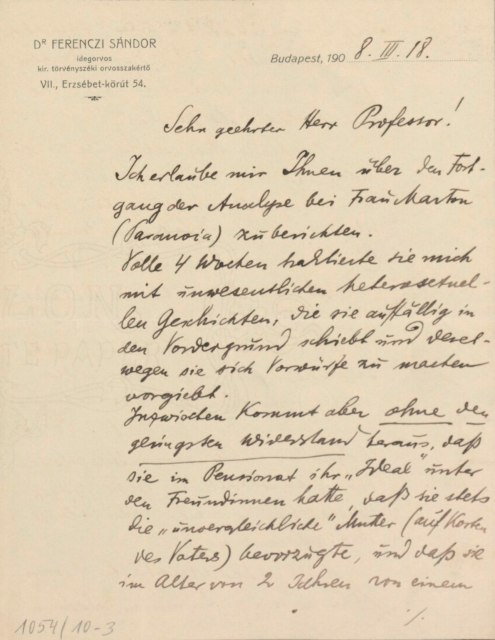 Dr FERENCZI SÁNDOR
idegorvos
kir. törvényszéki orvosszakértő
VII., Erzsébet-körút 54.
Budapest, 190 8. III. 18.
Sehr geehrter Herr Professor!
Ich erlaube mir Ihnen über den Fort-
gang der Analyse bei Frau Marton
(Paranoia) zu berichten.
Volle 4 Wochen traktierte sie mich
mit unwesentlichen heterosexuel-
len Geschichten, die sie auffällig in
den Vordergrund schiebt und deret-
wegen sie sich Vorwürfe zu machen
vorgiebt.
Inzwischen kommt aber ohne den
geringsten Widerstand heraus, daß
sie im Pensionat ihr „Ideal“ unter
den Freundinnen hatte, daß sie stets
die „unvergleichliche“ Mutter (auf Kosten
des Vaters) bevorzugte, und daß sie
im Alter von 2 Jahren von einem
./.
1054/10-3